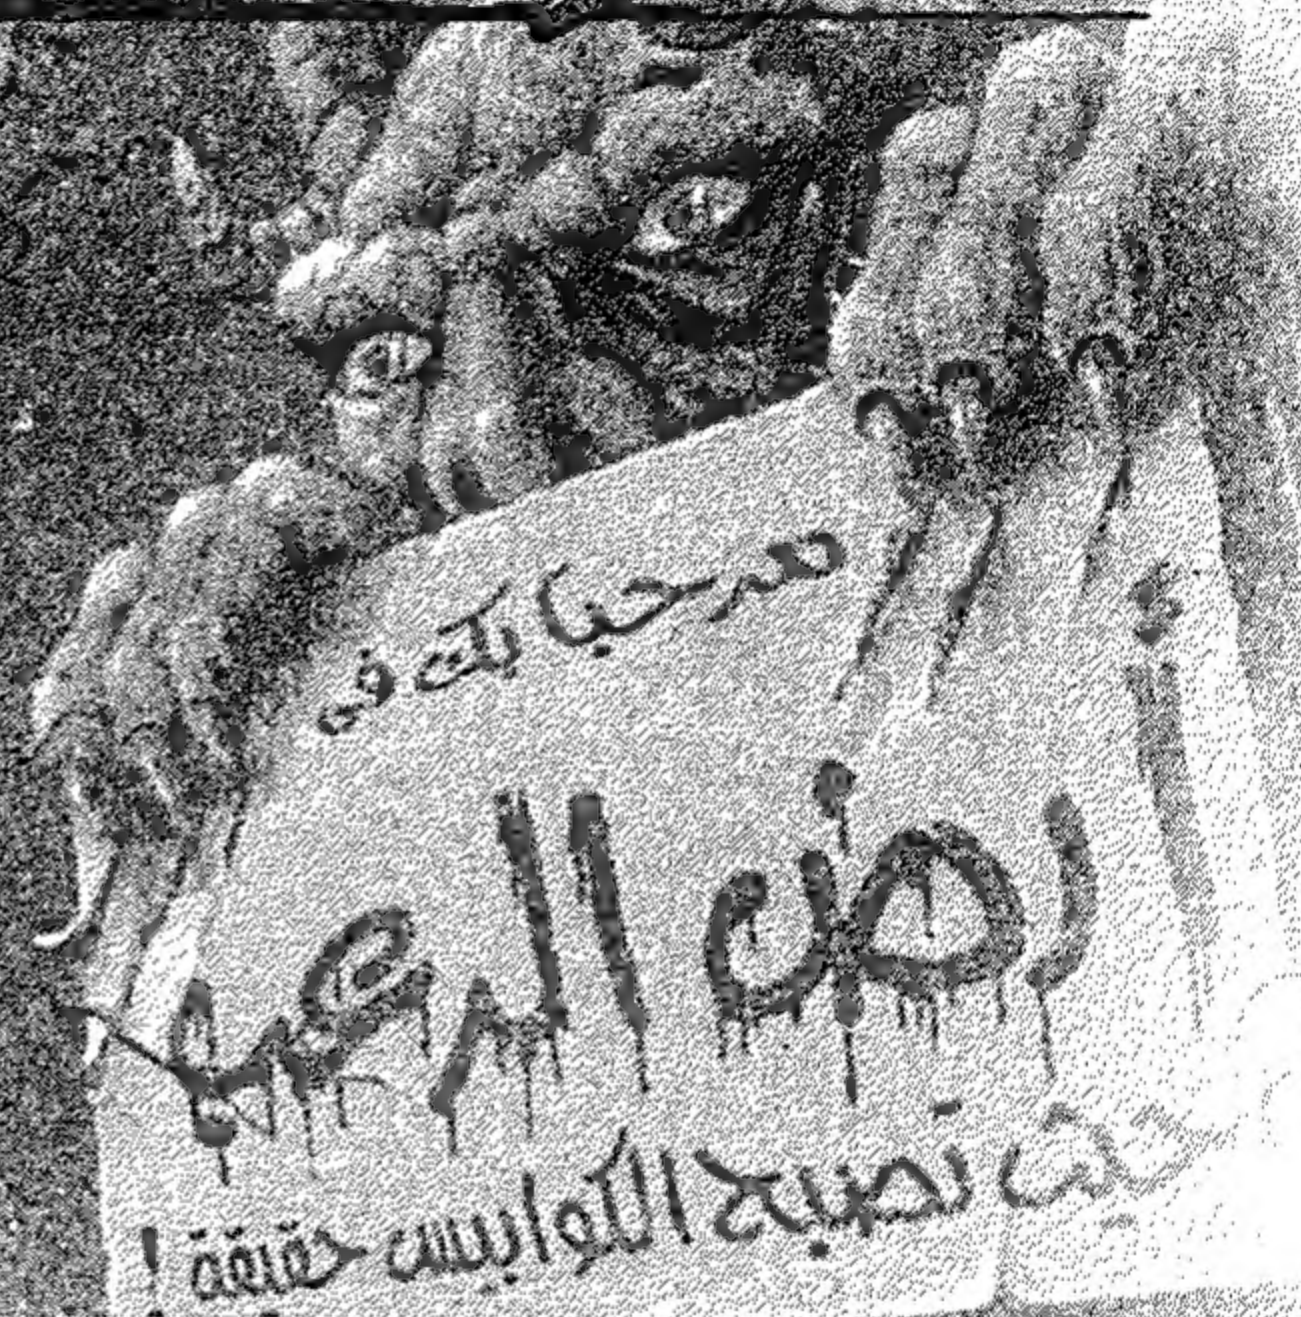 مرحبا بك في
أرض الرعب
حيث تصبح الكوابيس حقيقة !